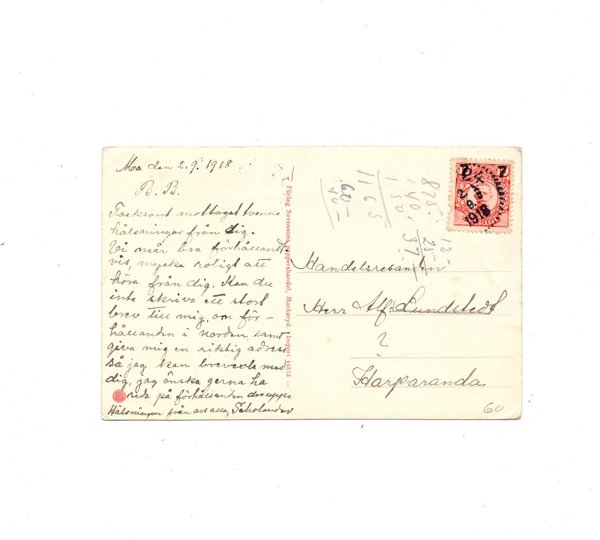 Ma den 2.9. 1918.
B. B.
Tacksamt mottaget tvenne
hälsningar från dig.
Vi mår bra förhållande
vis, mycke roligt att
höra från dig. Kan du
inte skrive ett stort
brev till mig, om för-
hållanden i norden samt
giva mig en riktig adress
så jag kan brevexla med
dig, jag önska gerna ha
reda på förhållanden deruppe
Hälsningar från oss alla,
Förlag Svenssons Pappershandel, Markaryd.
875:
150
40:
25
37
1165
60
Handelsresanden
Herr Alf. Lundstedt
?
Harparanda
7 7
1918
60